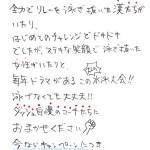 全力でリレーを泳ぎ抜いた漢たちが
いたり、
はじめてのチャレンジでドキドキ
でしたが、ステキな笑顔で泳ぎ抜いた
女性がいたりと、
毎年ドラマがあるこの水泳大会!!
泳げなくても大丈夫!!
ダッシュ自慢のコーチたちに
おまかせください
今ならキャンペーンにつき